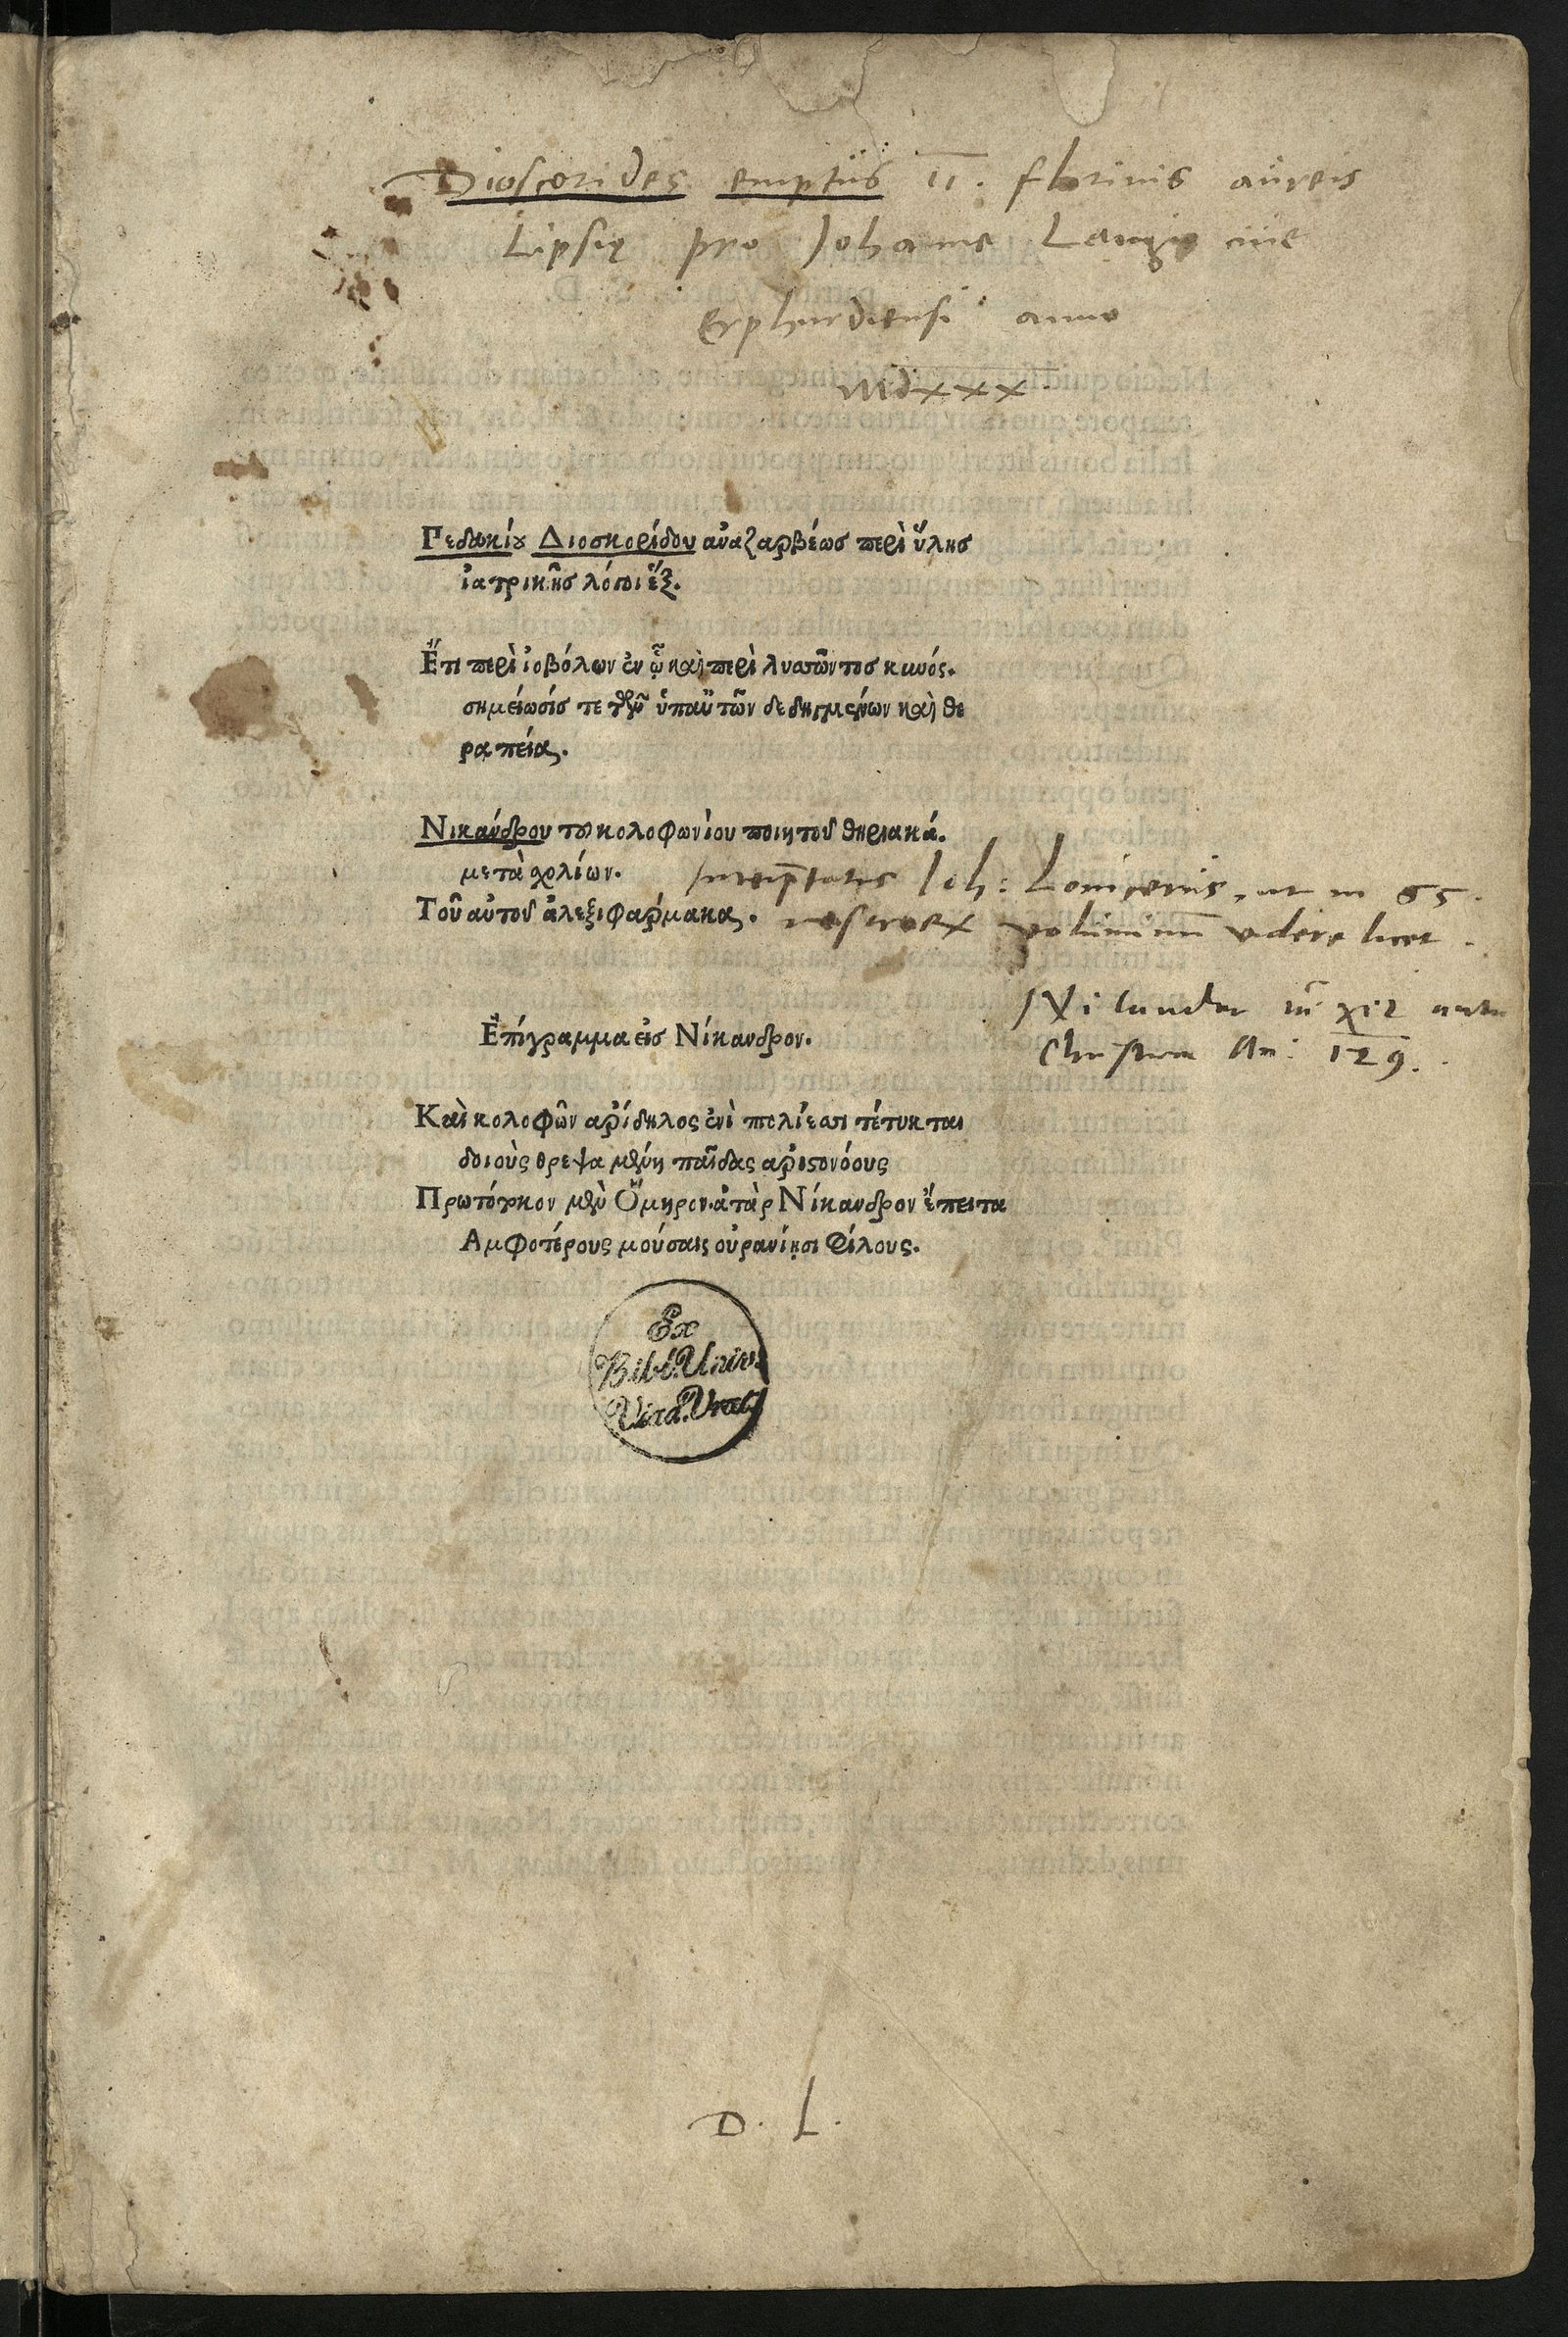 Dioscorides emptus II. florinis aureis
Lipsię pro Johanne Langio ciue
Erphurdiensi anno
MDXXX
Πεδακίου Διοσκορίδου ἀναζαρβέωσ περὶ ὕλησ
ἰατρικῆσ λόγοι ἕξ.
Ἔτι περὶ ἰοβόλων ἐν ᾧ καὶ περὶ λυσσῶντοσ κυνός.
σημείωσίσ τε τῶν ὑπ' αὐτῶν δεδηγμένων καὶ θε
ραπεία.
Νικάνδρου τοῦ κολοφωνίου ποιητοῦ θηριακά.
μετὰ σχολίων. Joh: Lonicerus, ut in 65.
Τοῦ αὐτοῦ ἀλεξιφάρμακα. voluminum videre licet.
Nicander vixit ante
Christum An: 129.
Ἐπίγραμμα εἰσ Νίκανδρον.
Καὶ κολοφῶν ἀρίδηλος ἐνὶ πολίεσσι τέτυκται
δοιοὺς θρεψαμένη παῖδας ἀριστονόους
Πρωτότοκον μὲν Ὅμηρον. ἀτὰρ Νίκανδρον ἔπειτα
Αμφοτέρους μούσαις οὐρανίῃσι φίλους.
Ex
Bibl. Univ.
Viad. Vrat.
D. L.